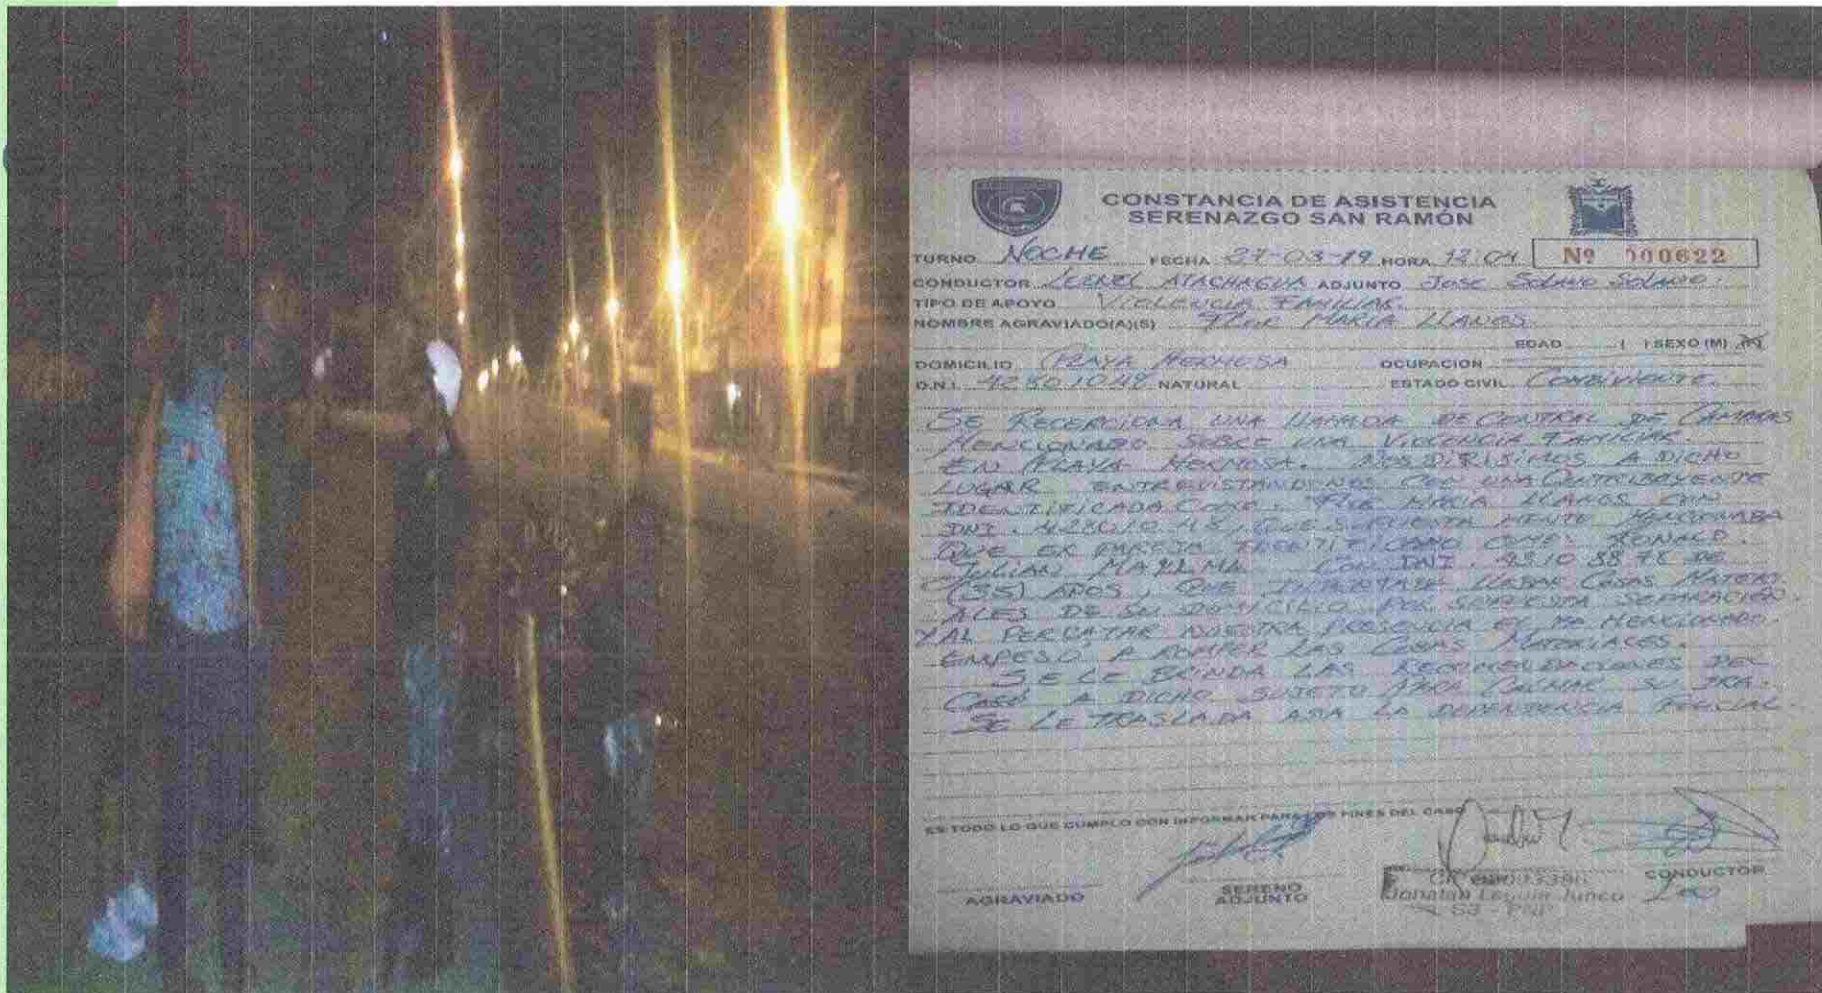 CONSTANCIA DE ASISTENCIA
SERENAZGO SAN RAMÓN
TURNO NOCHE FECHA 27-03-19 HORA 12:04 Nº 000622
CONDUCTOR ATACHAGUA ADJUNTO JOSE SOLANO SOLANO.
TIPO DE APOYO VIOLENCIA FAMILIAR.
NOMBRE AGRAVIADO(A)(S) MARIA LLANOS
EDAD ( ) SEXO (M)
DOMICILIO PLAYA HERMOSA OCUPACION
D.N.I. NATURAL ESTADO CIVIL CONBIVIENTE.
SE RECERCIONA UNA LLAMADA DE CENTRAL DE CAMARAS
MENCIONADO SOBRE UNA VIOLENCIA FAMILIAR.
EN PLAYA HERMOSA. NOS DIRISIMOS A DICHO
LUGAR ENTREVISTANDONOS CON UNA CONTRIBUYENTE
IDENTIFICADA COMO: MARIA LLANOS CON
DNI. QUE MENCIONABA
QUE PAREJA COMO: RONALD.
JULIAN CON DNI. DE
(35) AÑOS, QUE LLEBAR COSAS MATERI.
ALES DE SU DOMICILIO POR SUPUESTA SEPARACIÓN.
Y AL PERCATAR NUESTRA PRESENCIA EL YA MENCIONADO.
EMPESO A ROMPER LAS COSAS MATERIALES.
SE LE BRINDA LAS RECOMENDACIONES DEL
CASO A DICHO SUJETO PARA CALMAR SU IRA.
SE LE TRASLADA ASIA LA DEPENDENCIA POLICIAL.
ES TODO LO QUE CUMPLO CON INFORMAR PARA LOS FINES DEL CASO
AGRAVIADO
SERENO
ADJUNTO
Jonatan Junco
S3 - PNP
CONDUCTOR